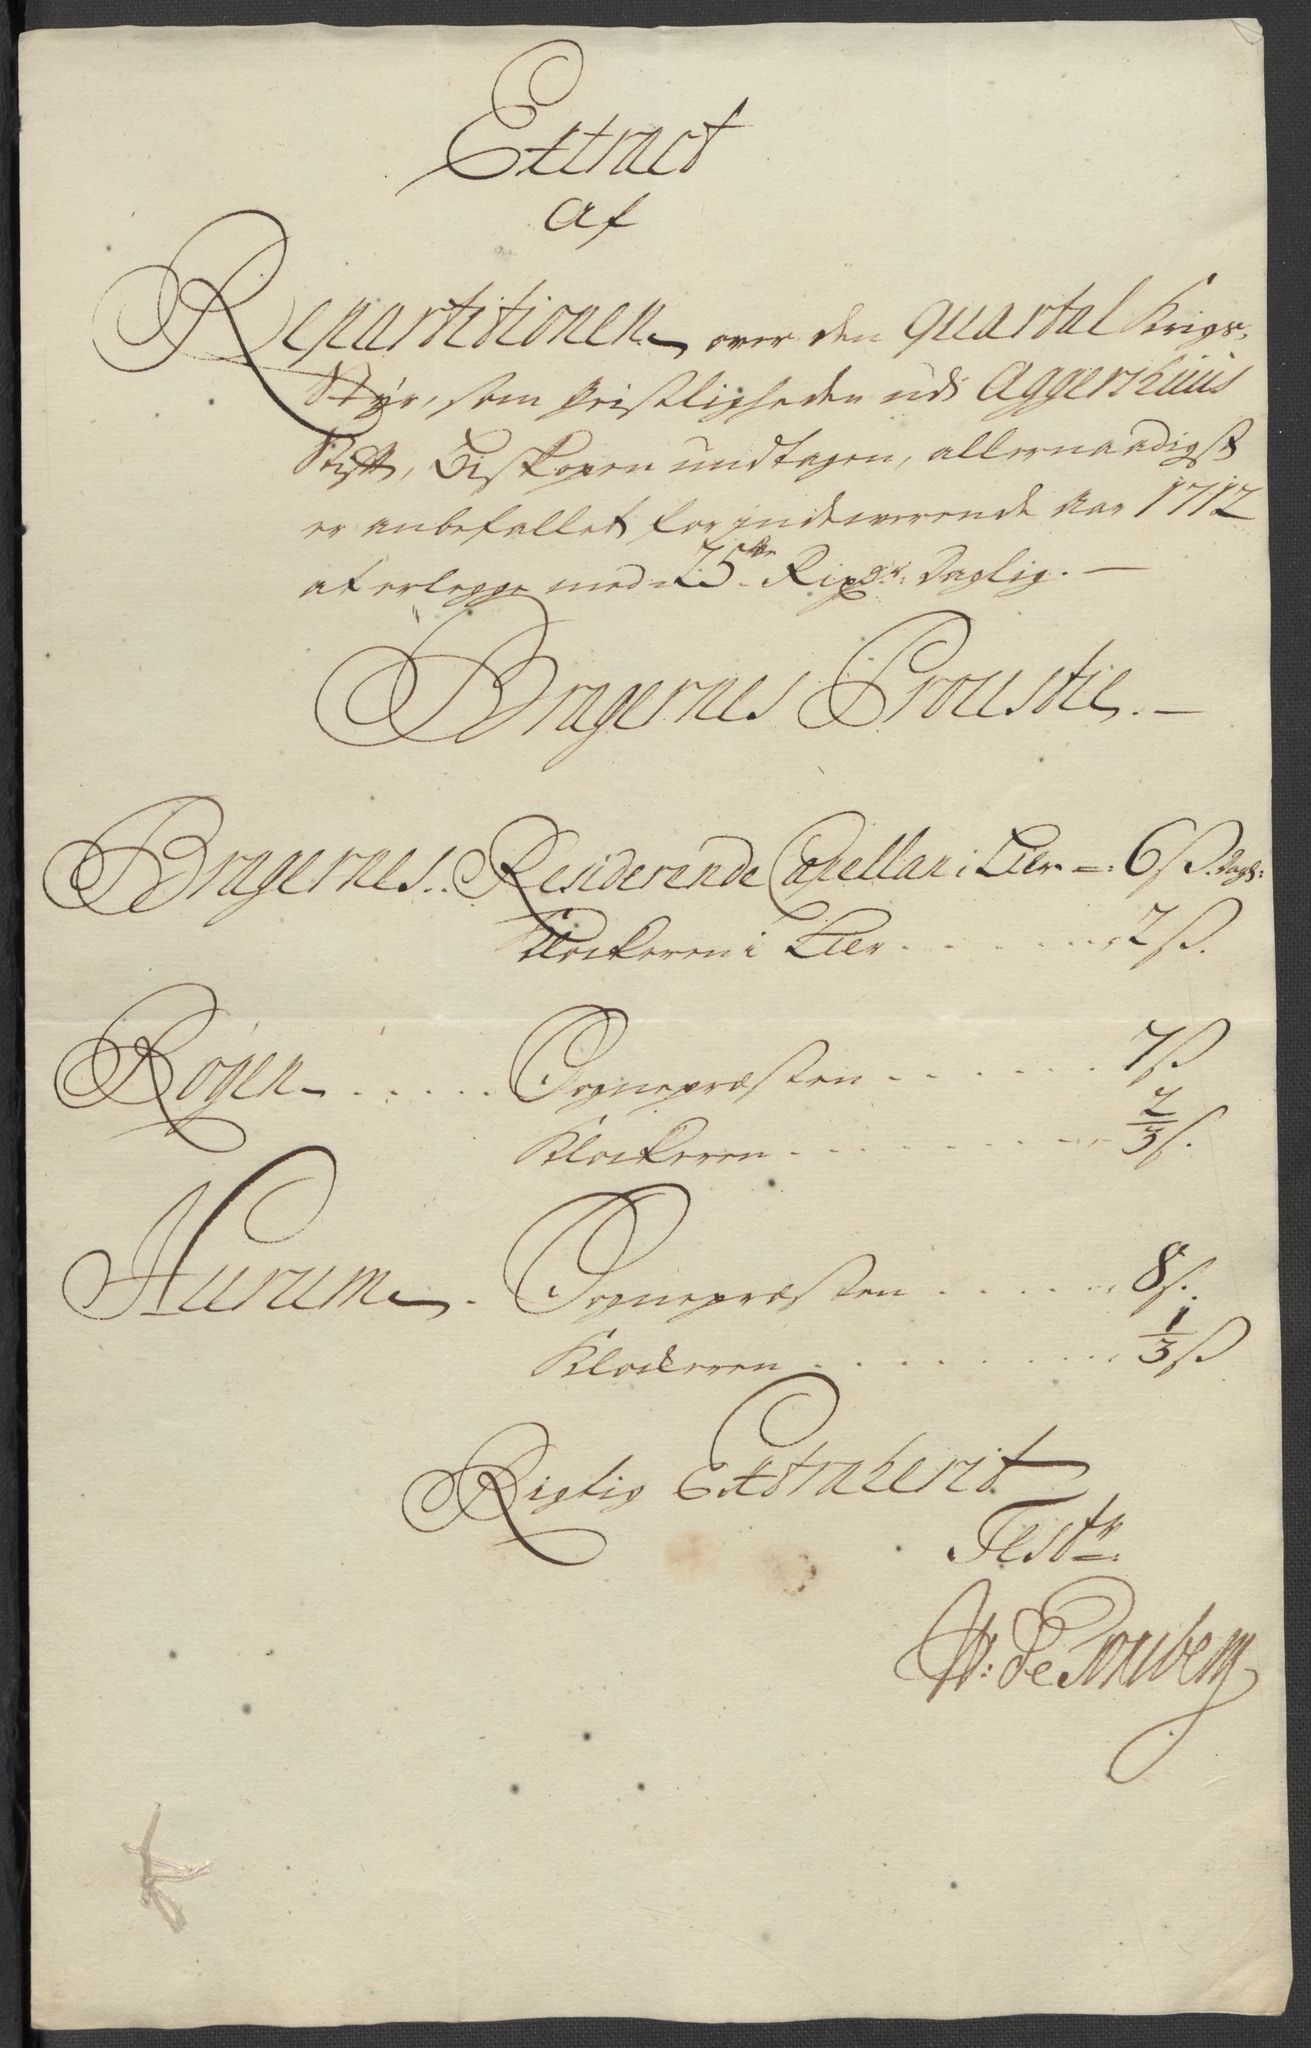 Extract
af
Repartitionen over den quartal Krigs-
Styr, som Geistligheden udi Aggershuus
Stift, Biskopen undtagen, allernaadigst
er anbefallet for indewerende Aar 1712
at erlegge med 25 Rixdr: Daglig. —
Bragernes Proustie. —
Bragernes. Residerende Capellan i Lier =: 6 ß. dagl:
Klockeren i Lier . . . . . 2 ß.
Røgen . . . . . Sognepræsten . . . . . 7 ß
Klockeren . . . . . 2/3 ß.
Hurum . Sognepræsten . . . . . 8 ß.
Klockeren . . . . . 1/3 ß
Rigtig Extraherit
Test:
W: de